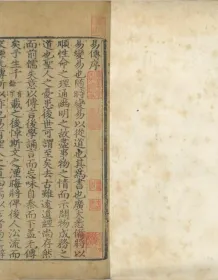 易傳序
易變易也隨時變易以從道也其為書也廣大悉備將以
順性命之理通幽明之故盡事物之情而示開物成務之
道也聖人之憂患後世可謂至矣去古雖遠遺經尚存然
而前儒失意以傳言後學誦言而忘味自秦而下蓋无傳
矣予生千載之後悼斯文之湮晦將俾後人沿流而